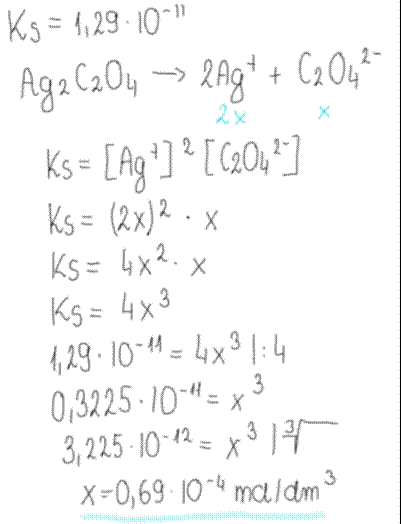 Ks = 1,29·10⁻¹¹
Ag₂C₂O₄ → 2Ag⁺ + C₂O₄²⁻
2x x
Ks = [Ag⁺]² [C₂O₄²⁻]
Ks = (2x)² · x
Ks = 4x² · x
Ks = 4x³
1,29·10⁻¹¹ = 4x³ |:4
0,3225·10⁻¹¹ = x³
3,225·10⁻¹² = x³ |∛
x = 0,69·10⁻⁴ mol/dm³